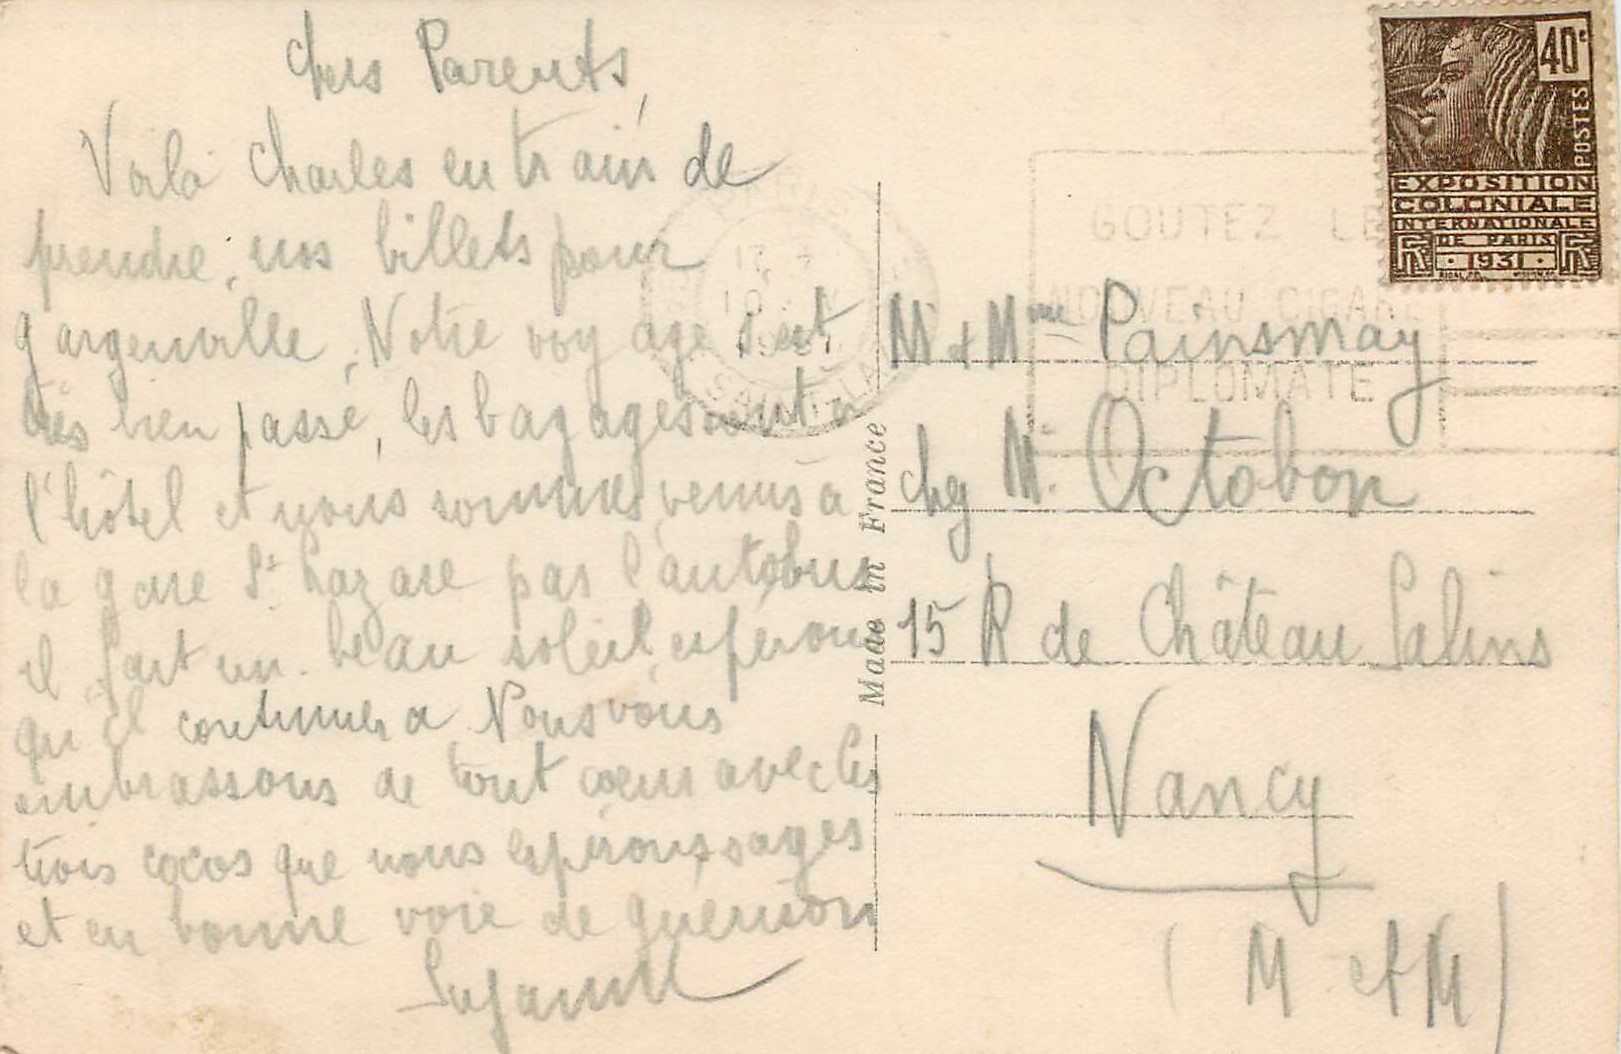 Chers Parents,
Voilà Charles en train de
prendre nos billets pour
Gargenville. Notre voyage s'est
très bien passé, les bagages sont à
l'hôtel et nous sommes venus à
la gare St Lazare par l'autobus
il fait un beau soleil, espérons
qu'il continuera Nous vous
embrassons de tout coeur avec les
trois cocos que nous espérons sages
et en bonne voie de guérison
Suzanne
Made in France
40c
POSTES
EXPOSITION
COLONIALE
INTERNATIONALE
DE PARIS
1931
RF
PARIS
17
10
1931
GOUTEZ LE
NOUVEAU CIGARE
DIPLOMATE
Mr & Mme Painsmay
chez Mr Octobon
15 R de Château Salins
Nancy
(M et M)